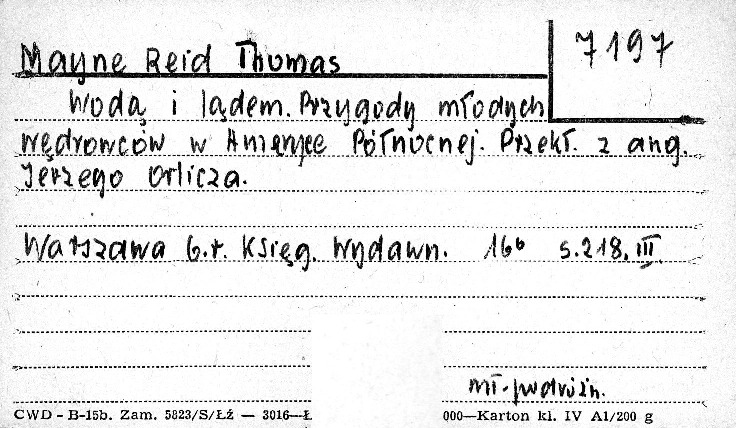 7197
Mayne Reid Thomas
Wodą i lądem. Przygody młodych
wędrowców w Ameryce Północnej. Przekł. z ang.
Jerzego Orlicza.
Warszawa b.r. Księg. Wydawn. 16° s.218, III
mł-podróżn.
CWD - B-15b. Zam. 5823/S/Łź — 3016—Ł 000—Karton kl. IV A1/200 g